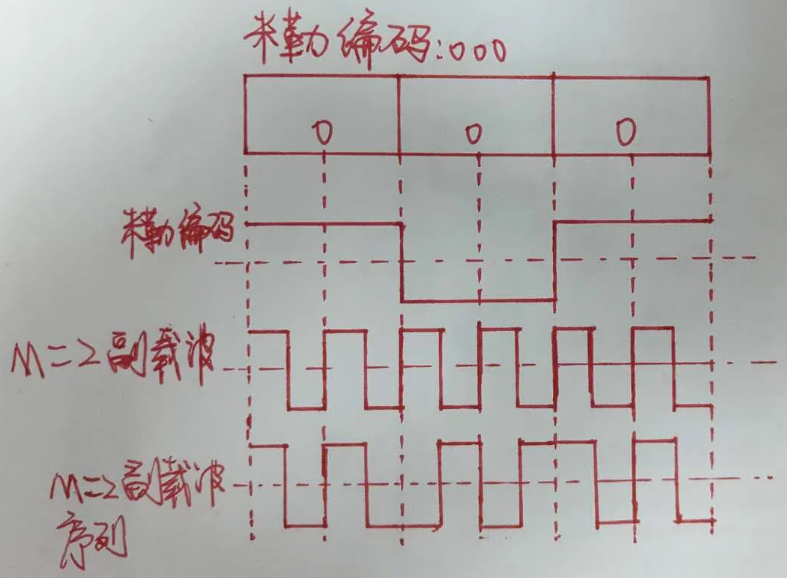 米勒编码:000
0 0 0
米勒编码
M=2副载波
M=2副载波
序列